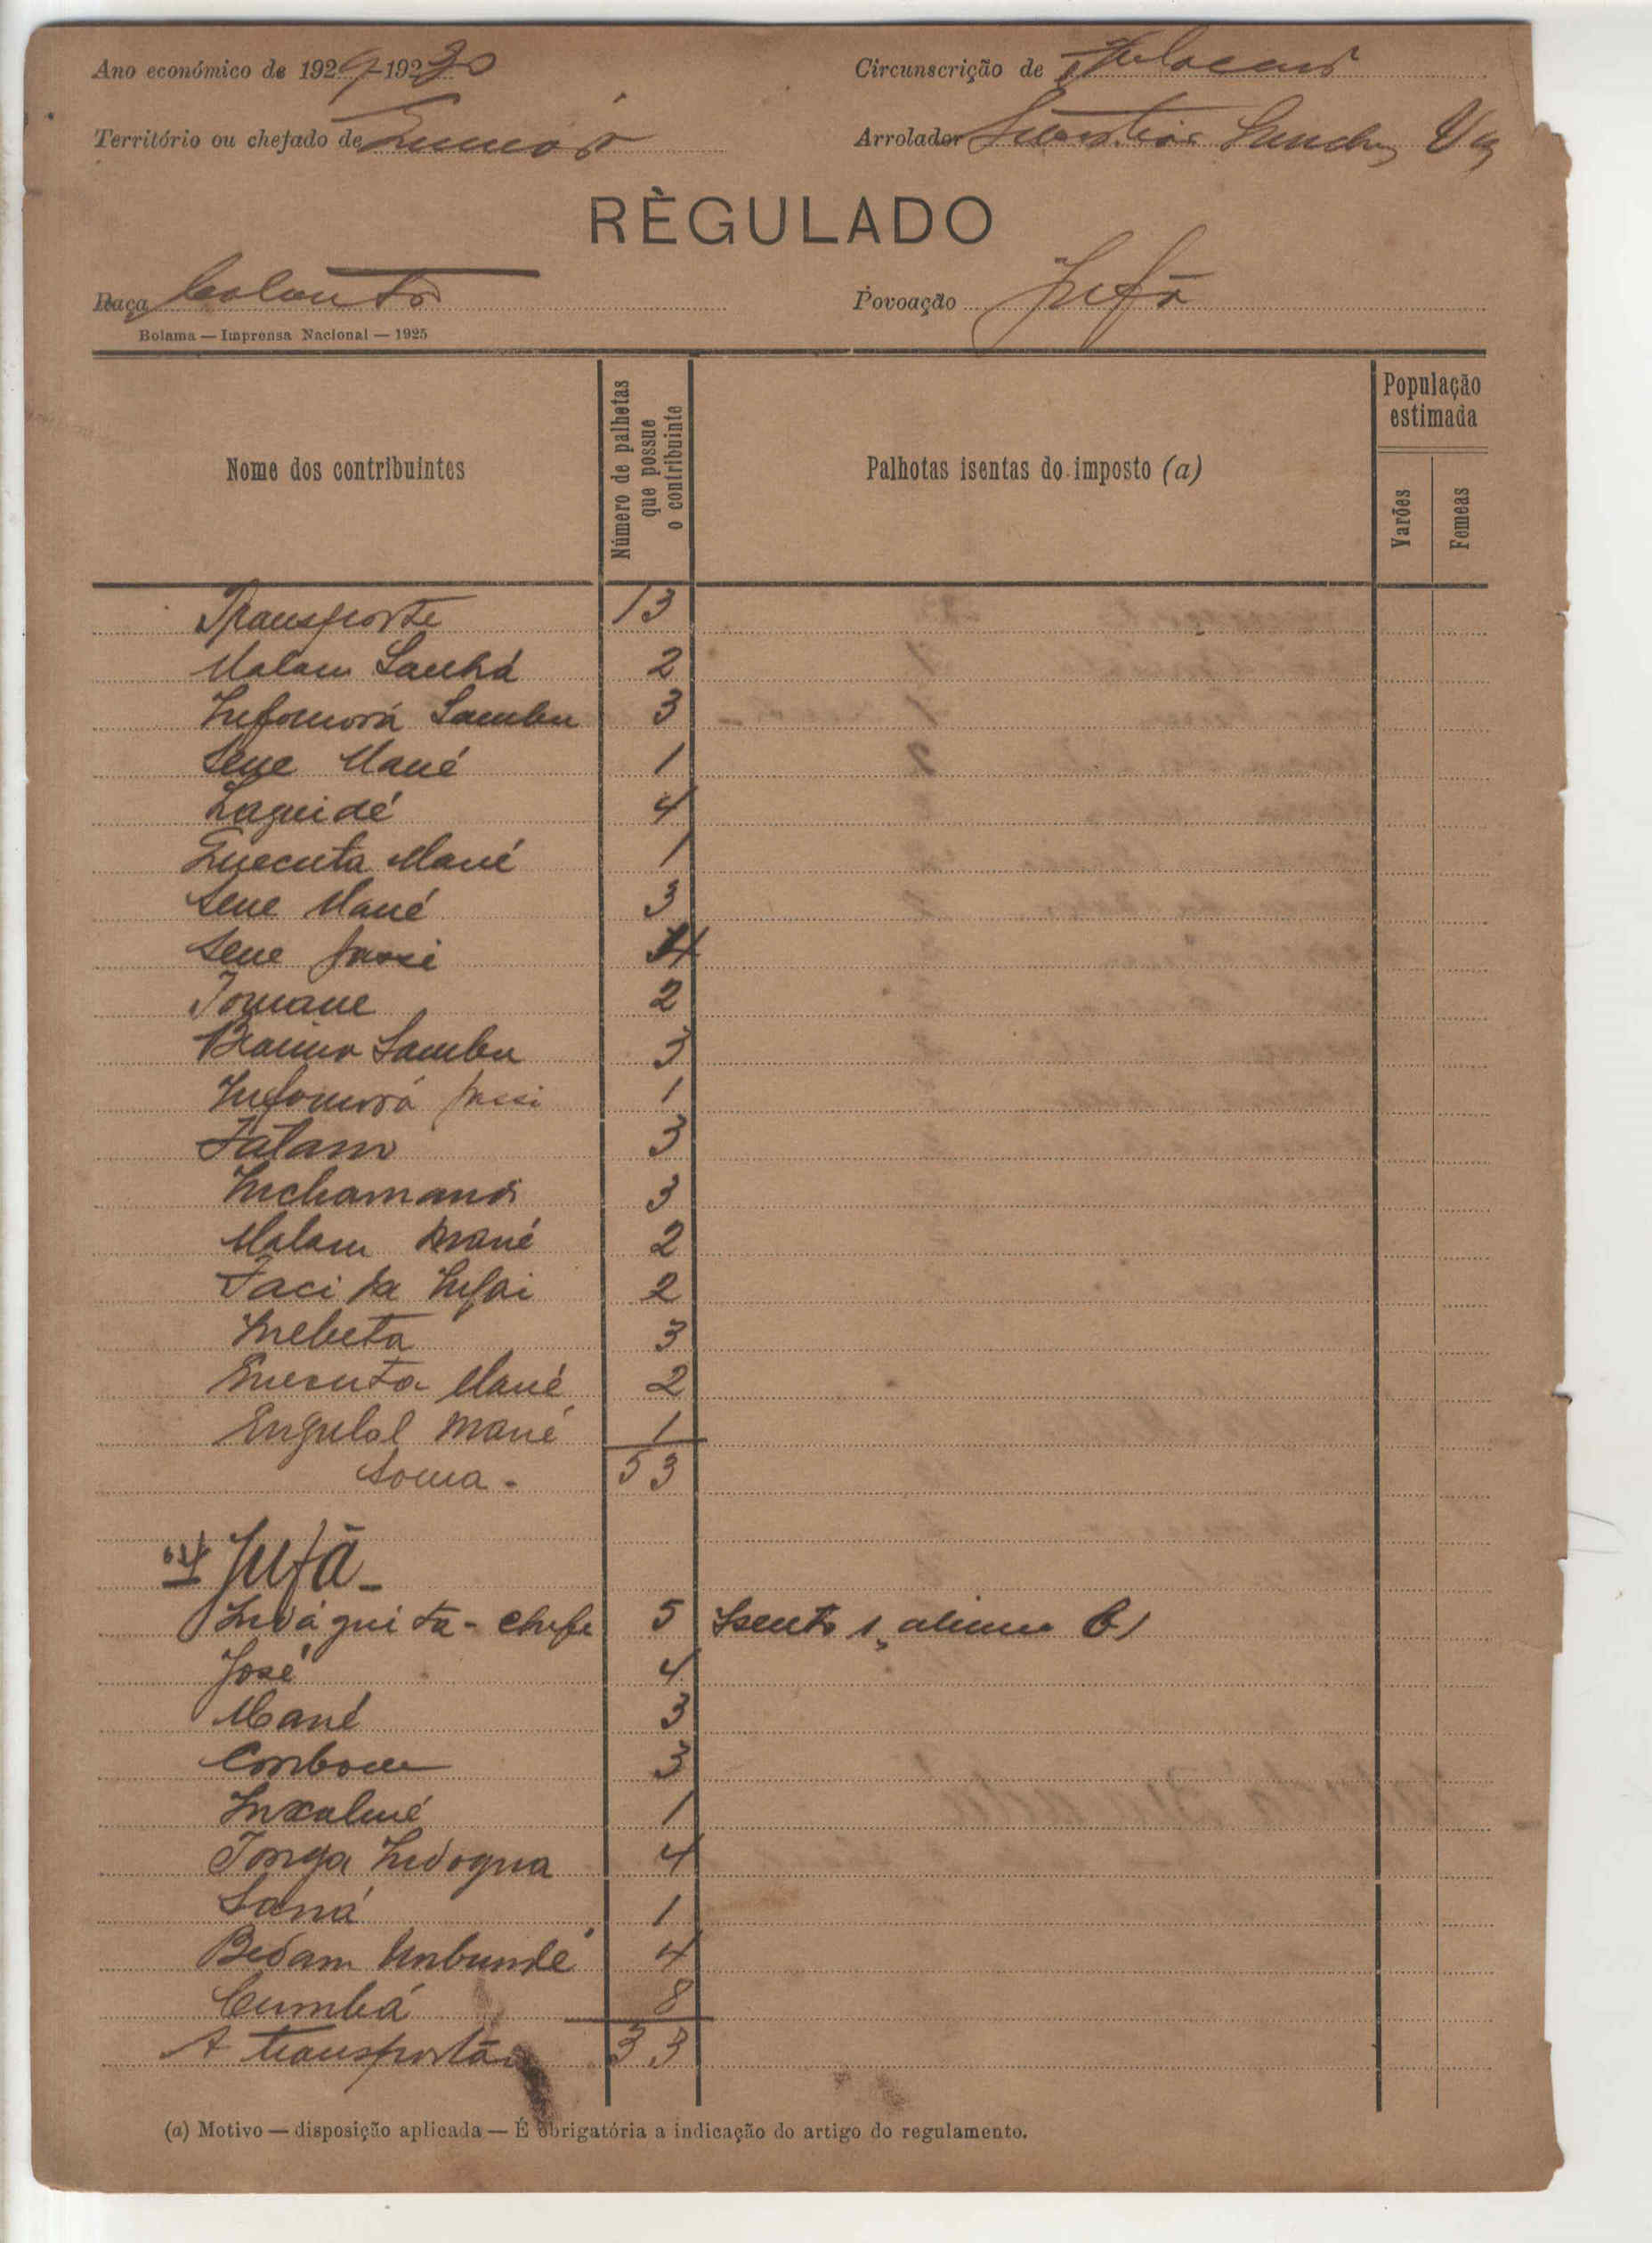 Ano económico de 1929-1930
Circunscrição de
Território ou chefado de
Arrolador Sebastião Sanches Vaz
RÈGULADO
Raça
Povoação Jufá
Bolama — Imprensa Nacional — 1925
Nome dos contribuintes
Número de palhetas que possue o contribuinte
Palhotas isentas do imposto (a)
População estimada
Varões
Femeas
Transporte 13
Malam Sanhá 2
Infomorá Sambu 3
Sene Mané 1
Laguidé 4
Quecuta Mané 1
Sene Mané 3
Sene Jassi 4
Tomane 2
Braima Sambu 3
Infomorá Jassi 1
Fatam 3
Inchamané 3
Malam Mané 2
Faci da Infai 2
Inebeta 3
Quecuta Mané 2
Engulol Mané 1
Soma - 53
Jufá -
Indáguita - chefe 5 Isento 1, alinea b)
José 4
Mané 3
3
Inxalmé 1
Tonga Indogna 4
Saná 1
Bedam Unbundé 4
Cumbá 8
A transportar 33
(a) Motivo — disposição aplicada — É obrigatória a indicação do artigo do regulamento.